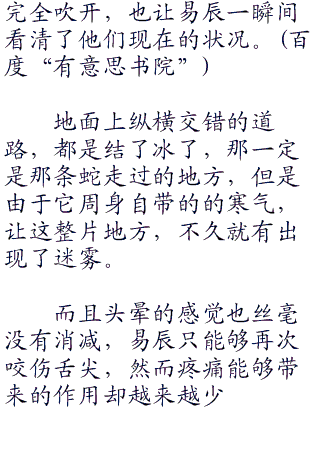 完全吹开，也让易辰一瞬间
看清了他们现在的状况。(百
度“有意思书院”)
地面上纵横交错的道
路，都是结了冰了，那一定
是那条蛇走过的地方，但是
由于它周身自带的的寒气，
让这整片地方，不久就有出
现了迷雾。
而且头晕的感觉也丝毫
没有消减，易辰只能够再次
咬伤舌尖，然而疼痛能够带
来的作用却越来越少